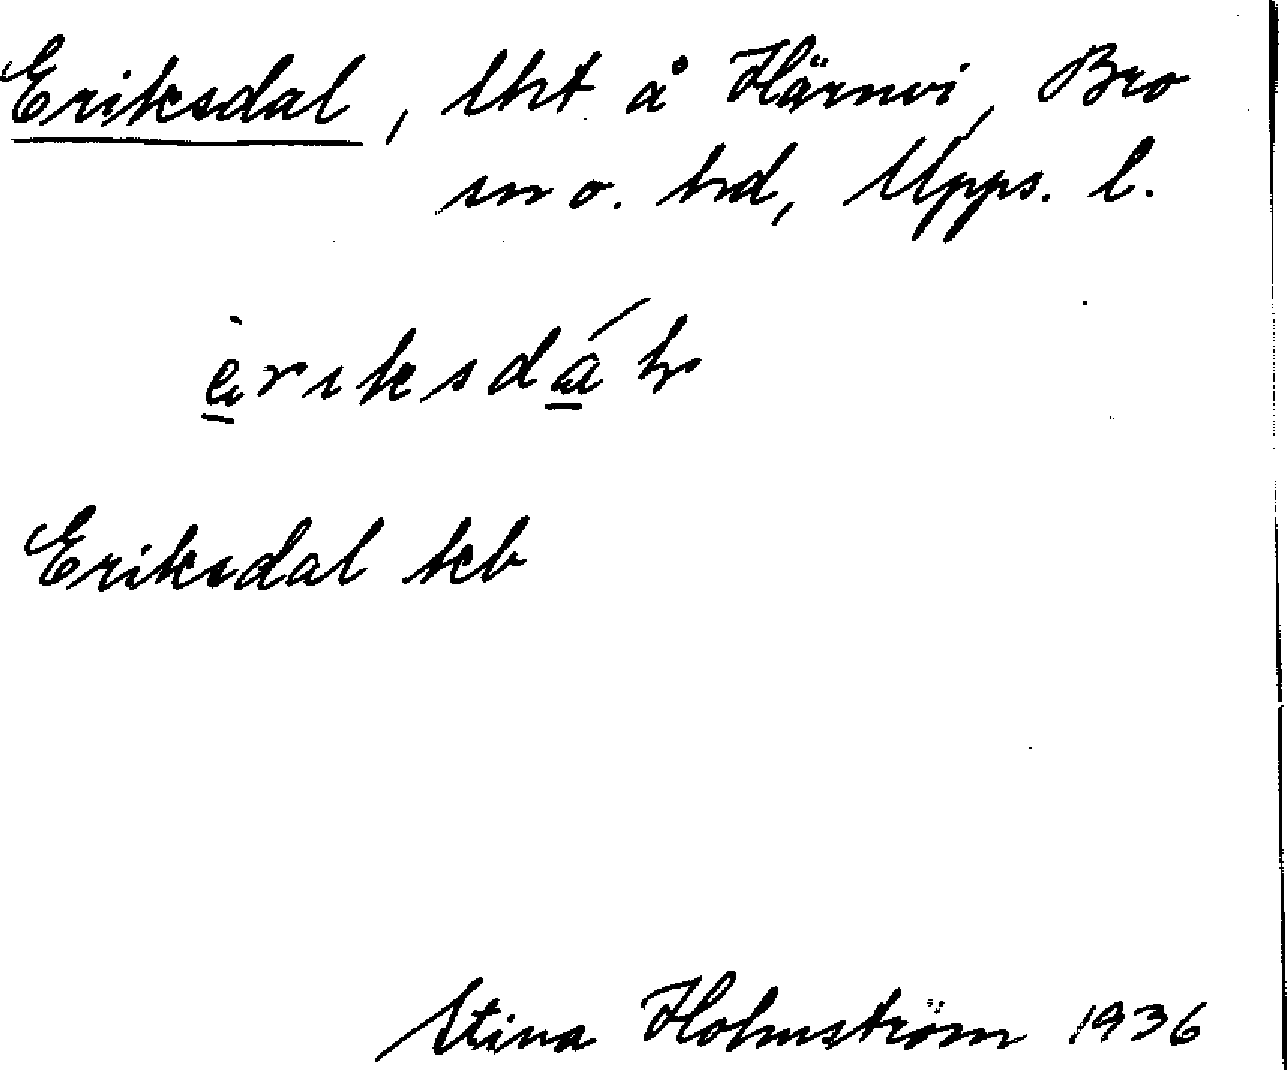 Eriksdal, lht å Härnevi, Bro
sn o. hd, Upps. l.
èriksdáḷ
Eriksdal kb
Stina Holmström 1936